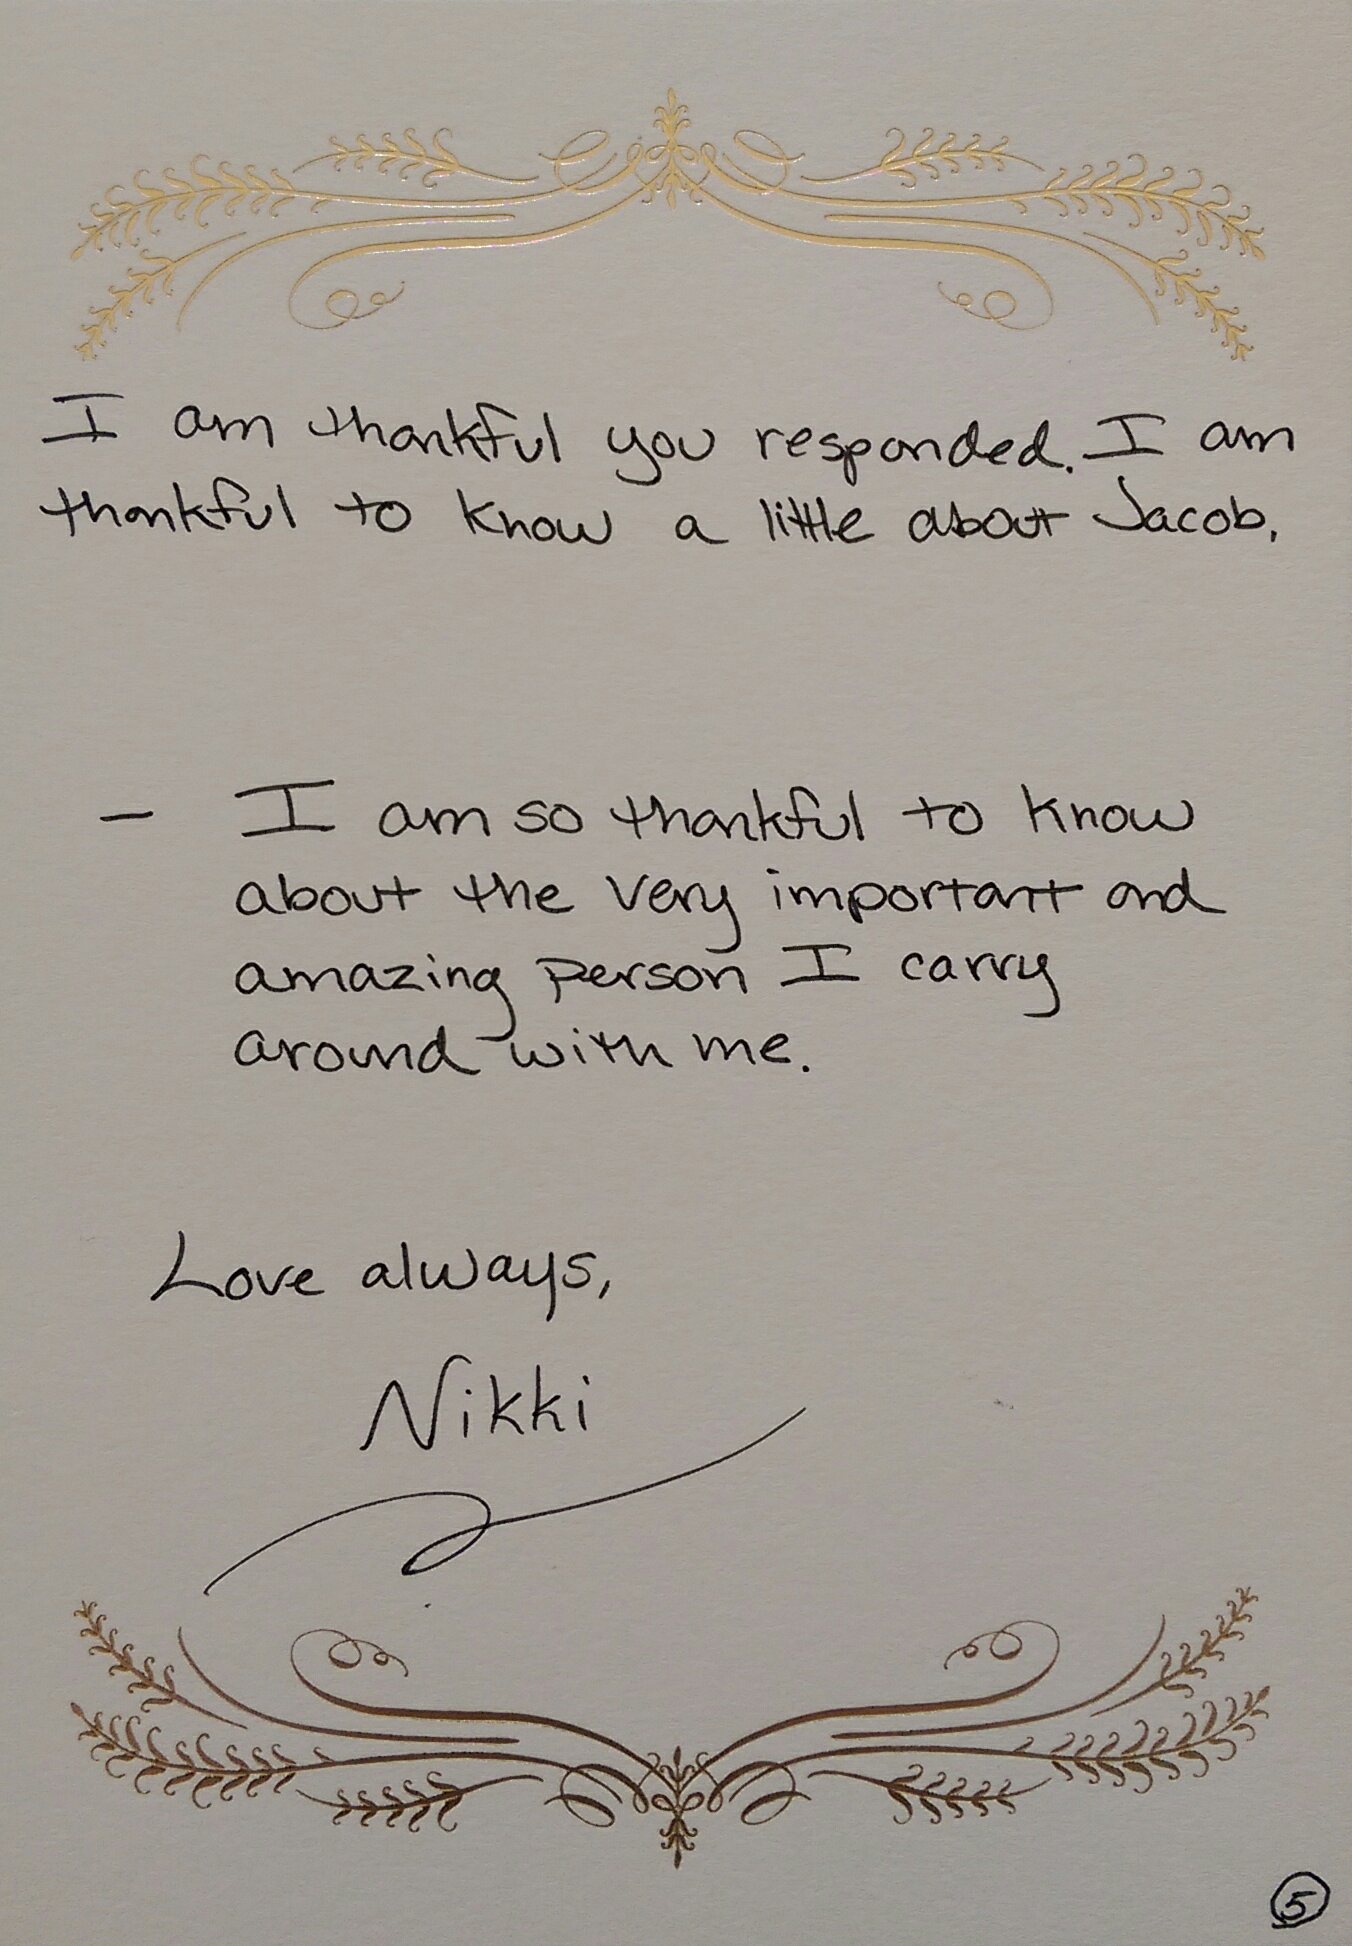 I am thankful you responded. I am
thankful to know a little about Jacob.
- I am so thankful to know
about the very important and
amazing person I carry
around with me.
Love always,
Nikki
5